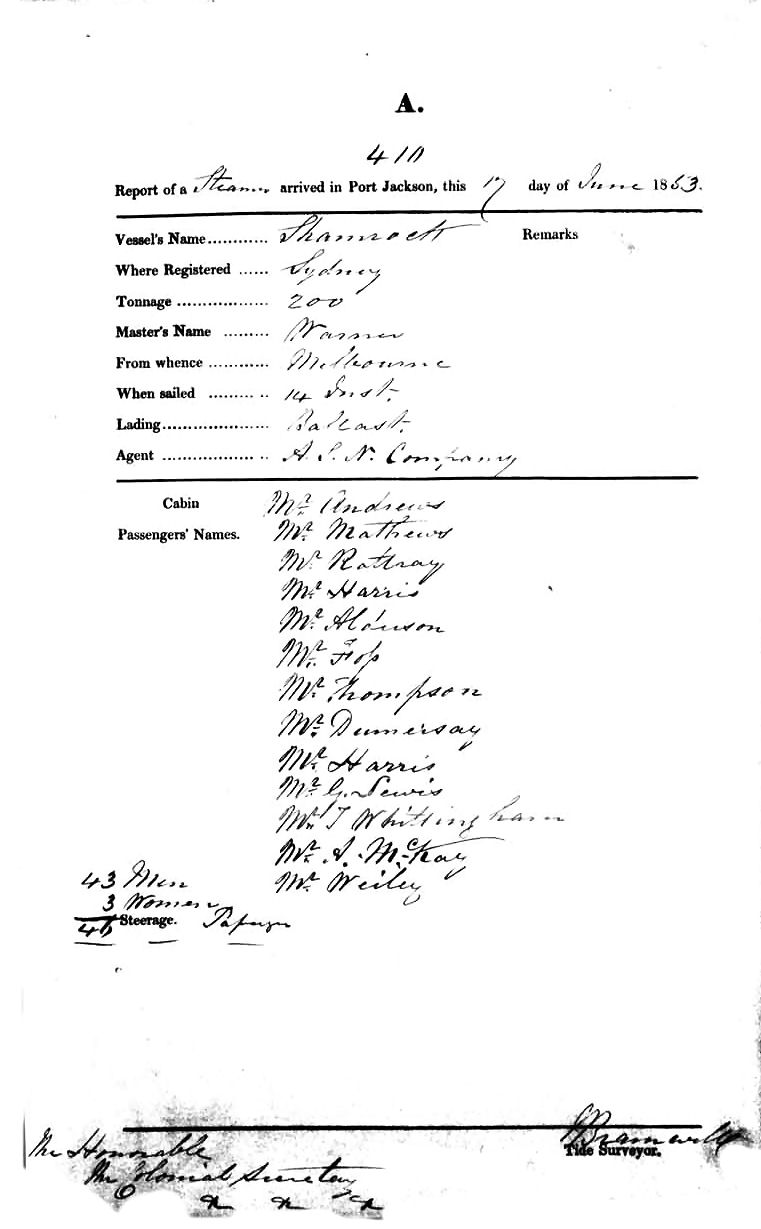 A.
410
Report of a Steamer arrived in Port Jackson, this 17 day of June 1853.
Vessel's Name............ Shamrock Remarks
Where Registered ...... Sydney
Tonnage .................. 200
Master's Name ......... Warner
From whence ............ Melbourne
When sailed ......... .. 14 Inst.
Lading..................... Ballast.
Agent ................... .. A. S. N. Company
Cabin Mr. Andrews
Passengers' Names. Mr. Mathews
Mr. Rattray
Mr. Harris
Mr.
Mr.
Mr. Thompson
Mr. Dumersay
Mr. Harris
Mr. G. Lewis
T Whittingham
A. McKay
43 Men Mr. Weiley
3 Women
46 Steerage.
Bramwell
Tide Surveyor.
The Honorable
The Colonial Secretary